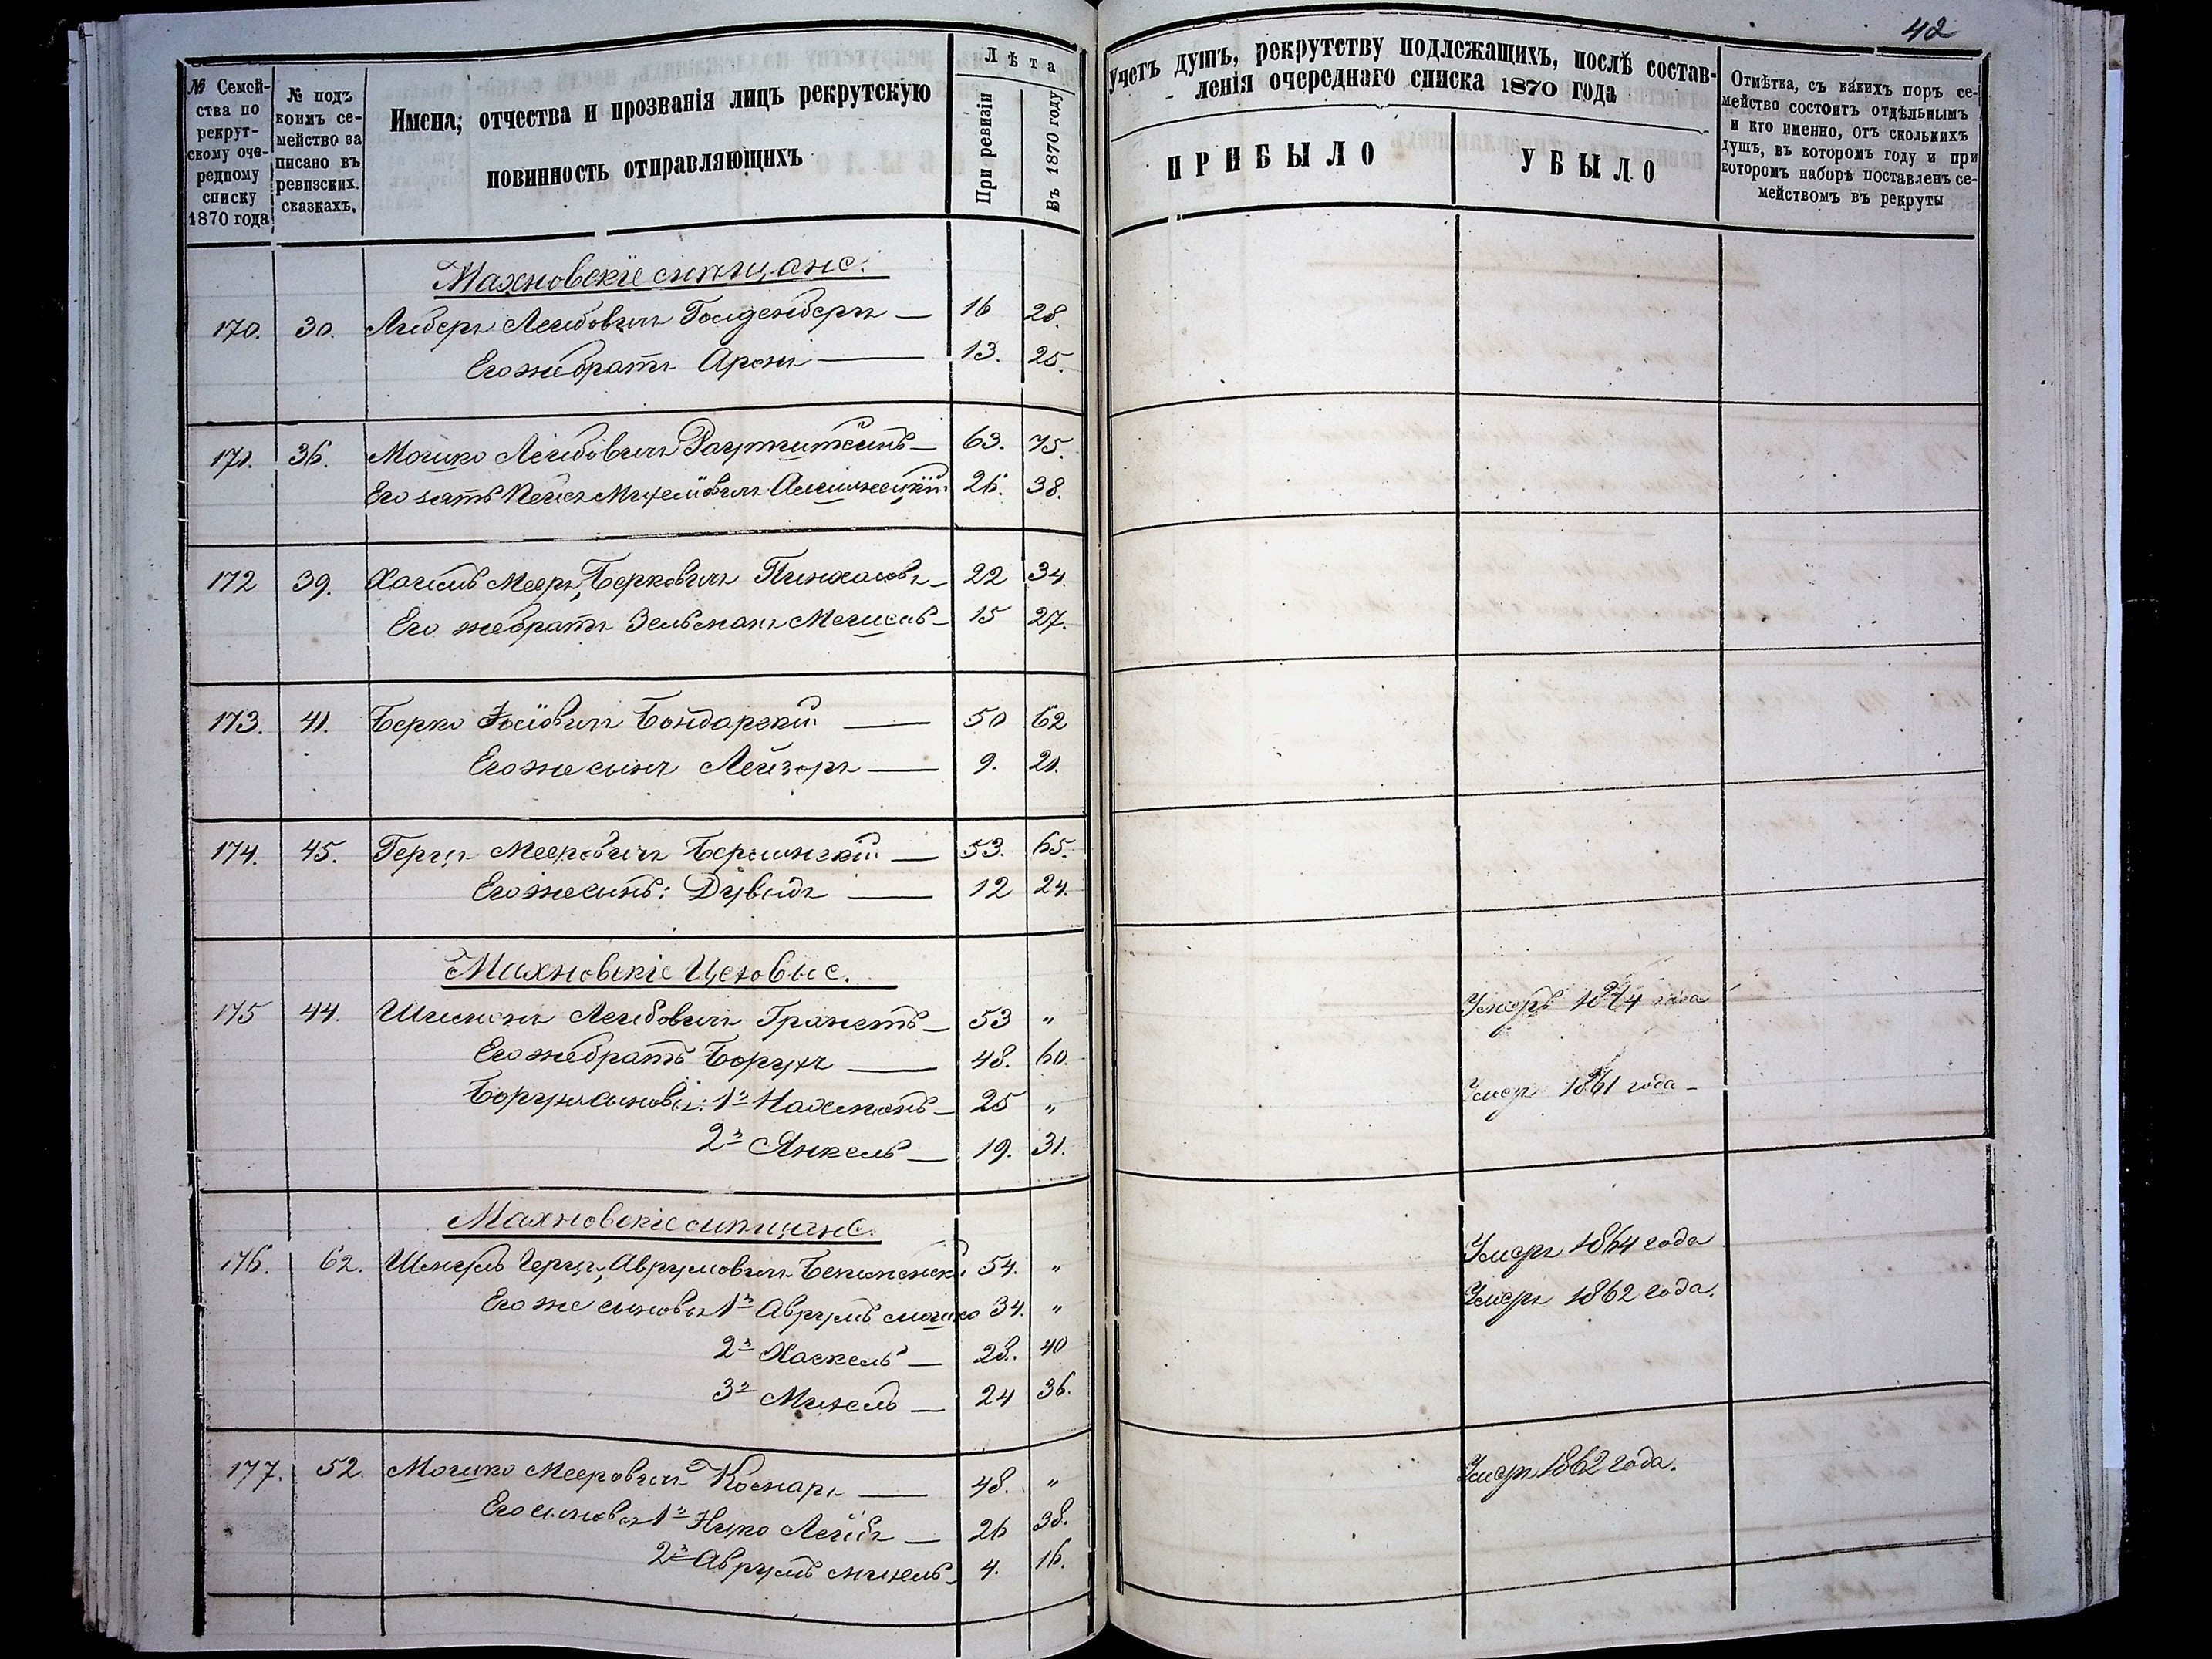 42
№ Семей-
ства по
рекрут-
скому оче-
редному
списку
1870 года
№ подъ
коимъ се-
мейство за
писано въ
ревизских.
сказкахъ.
Имена, отчества и прозванія лицъ рекрутскую
повинность отправляющихъ
Лѣта
При ревизіи
Въ 1870 году
Учетъ душъ, рекрутству подлежащихъ, послѣ состав-
ленія очереднаго списка 1870 года
ПРИБЫЛО
УБЫЛО
Отмѣтка, съ какихъ поръ се-
мейство состоитъ отдѣльнымъ
и кто именно, отъ сколькихъ
душъ, въ которомъ году и при
которомъ наборѣ поставленъ се-
мействомъ въ рекруты
Махновскіе мѣщане.
170. 30. Либеръ Лейбовичъ Голденберъ — 16 28.
Его же братъ Аронъ — 13. 25.
171. 36. Мошко Лейбовичъ — 63. 75.
Его зять Пейсъ 26. 38.
172 39. Хаимъ Мееръ, Берковичъ Пинхасовъ — 22 34.
Его же братъ Зельманъ — 15 27.
173. 41. Берко Іосіовичъ Бондарскій — 50 62
Его же сынъ Лейзоръ — 9. 21.
174. 45. Герцъ Мееровичъ Бершинскій — 53. 65.
Его же сынъ: Дувидъ — 12 24.
Махновскіе Цеховые.
175 44. Шимонъ Лейбовичъ Гранетъ — 53 " Умеръ года
Его же братъ Борухъ — 48. 60.
Боруха сыновья: 1й Нахманъ — 25 " Умеръ 1861 года —
2й Янкель — 19. 31.
Махновскіе мѣщане.
176. 62. Шмуль Герцъ, Аврумовичъ 54. " Умеръ 1864 года
Его же сыновья 1й Аврумъ Мошко 34. " Умеръ 1862 года.
2й Хаскель — 28. 40
3й Михель — 24 36.
177. 52. Мошко Мееровичъ Коснаръ — 48. " Умеръ 1862 года.
Его сыновья 1й Ицко Лейбъ — 26 38.
2й Аврумъ Михель — 4. 16.